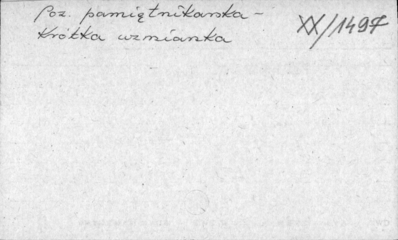 Poz. pamiętnikarska – XX/1497
Krótka wzmianka